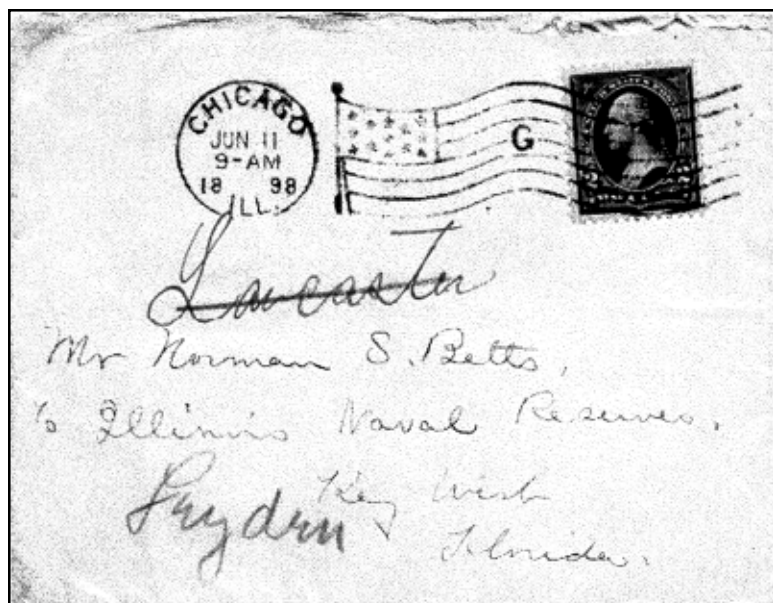 CHICAGO
JUN 11
9-AM
18 98
ILL.
G
Lancaster
Mr Norman S. Betts,
c/o Illinois Naval Reserves.
Key West
Florida.